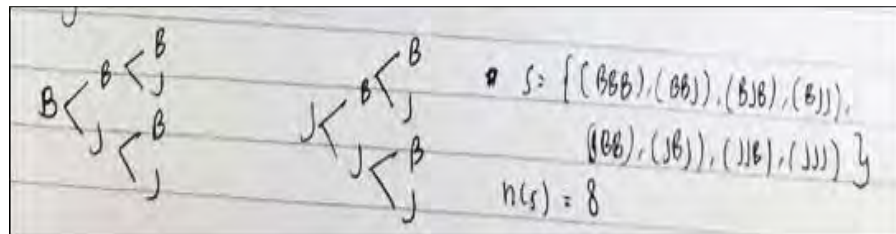 B B B
J
J B
J
J B B
J
J B
J
S = {(BBB), (BBJ), (BJB), (BJJ),
(JBB), (JBJ), (JJB), (JJJ)}
n(s) = 8